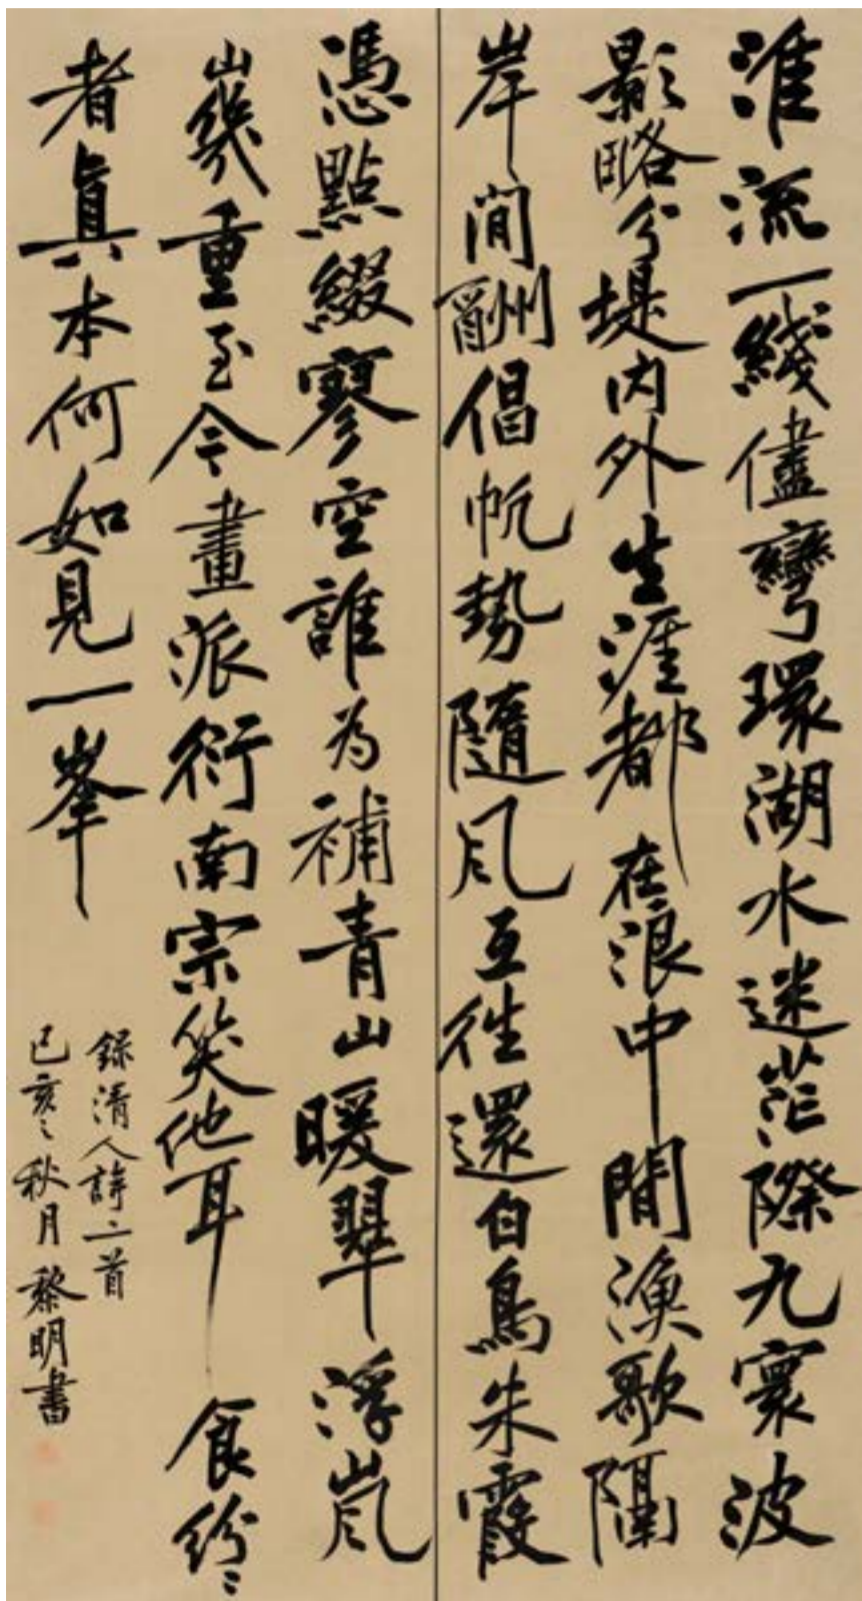 淮流一綫儘彎環湖水迷茫際九寰波
影略分堤內外生涯都在浪中間漁歌隔
岸閒酬倡帆勢隨風互往還白鳥朱霞
憑點綴寥空誰為補青山暖翠浮嵐
山幾重至今畫派衍南宗笑他耳食紛〻
者真本何如見一峯
錄清人詩二首
己亥秋月黎明書